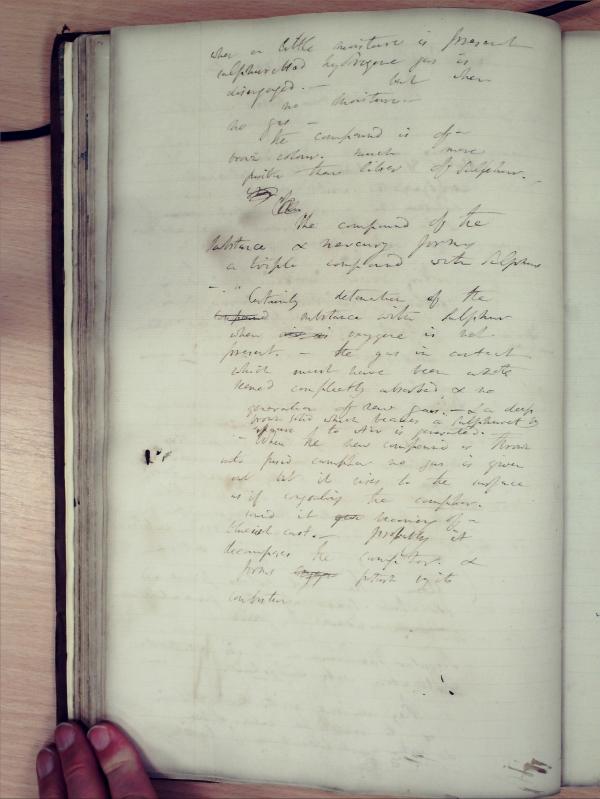 when a little moisture is present
sulphuretted hydrogene gas is
disengaged. — but when
no moisture —
no gas —
the compound is of a
brown colour. much more
than liver of Sulphur. —
The compound of the
substance & mercury forms
a triple compound with Sulphur
— " Certainly detonation of the
compound substance with sulphur
when oxygene is not
present. — the gas in contact
which must have been azote
seemed completely absorbed & no
generation of new gas. — & a deep
brown solid which becomes a sulphuret by
exposure to Air is generated. —
— When the new compound is thrown
into fused camphor no gas is given
out but it rises to the surface
as if expelling the camphor.
and it burning of a
blueish cast. — probably it
decomposes the camphor. &
forms potash by its
combustion